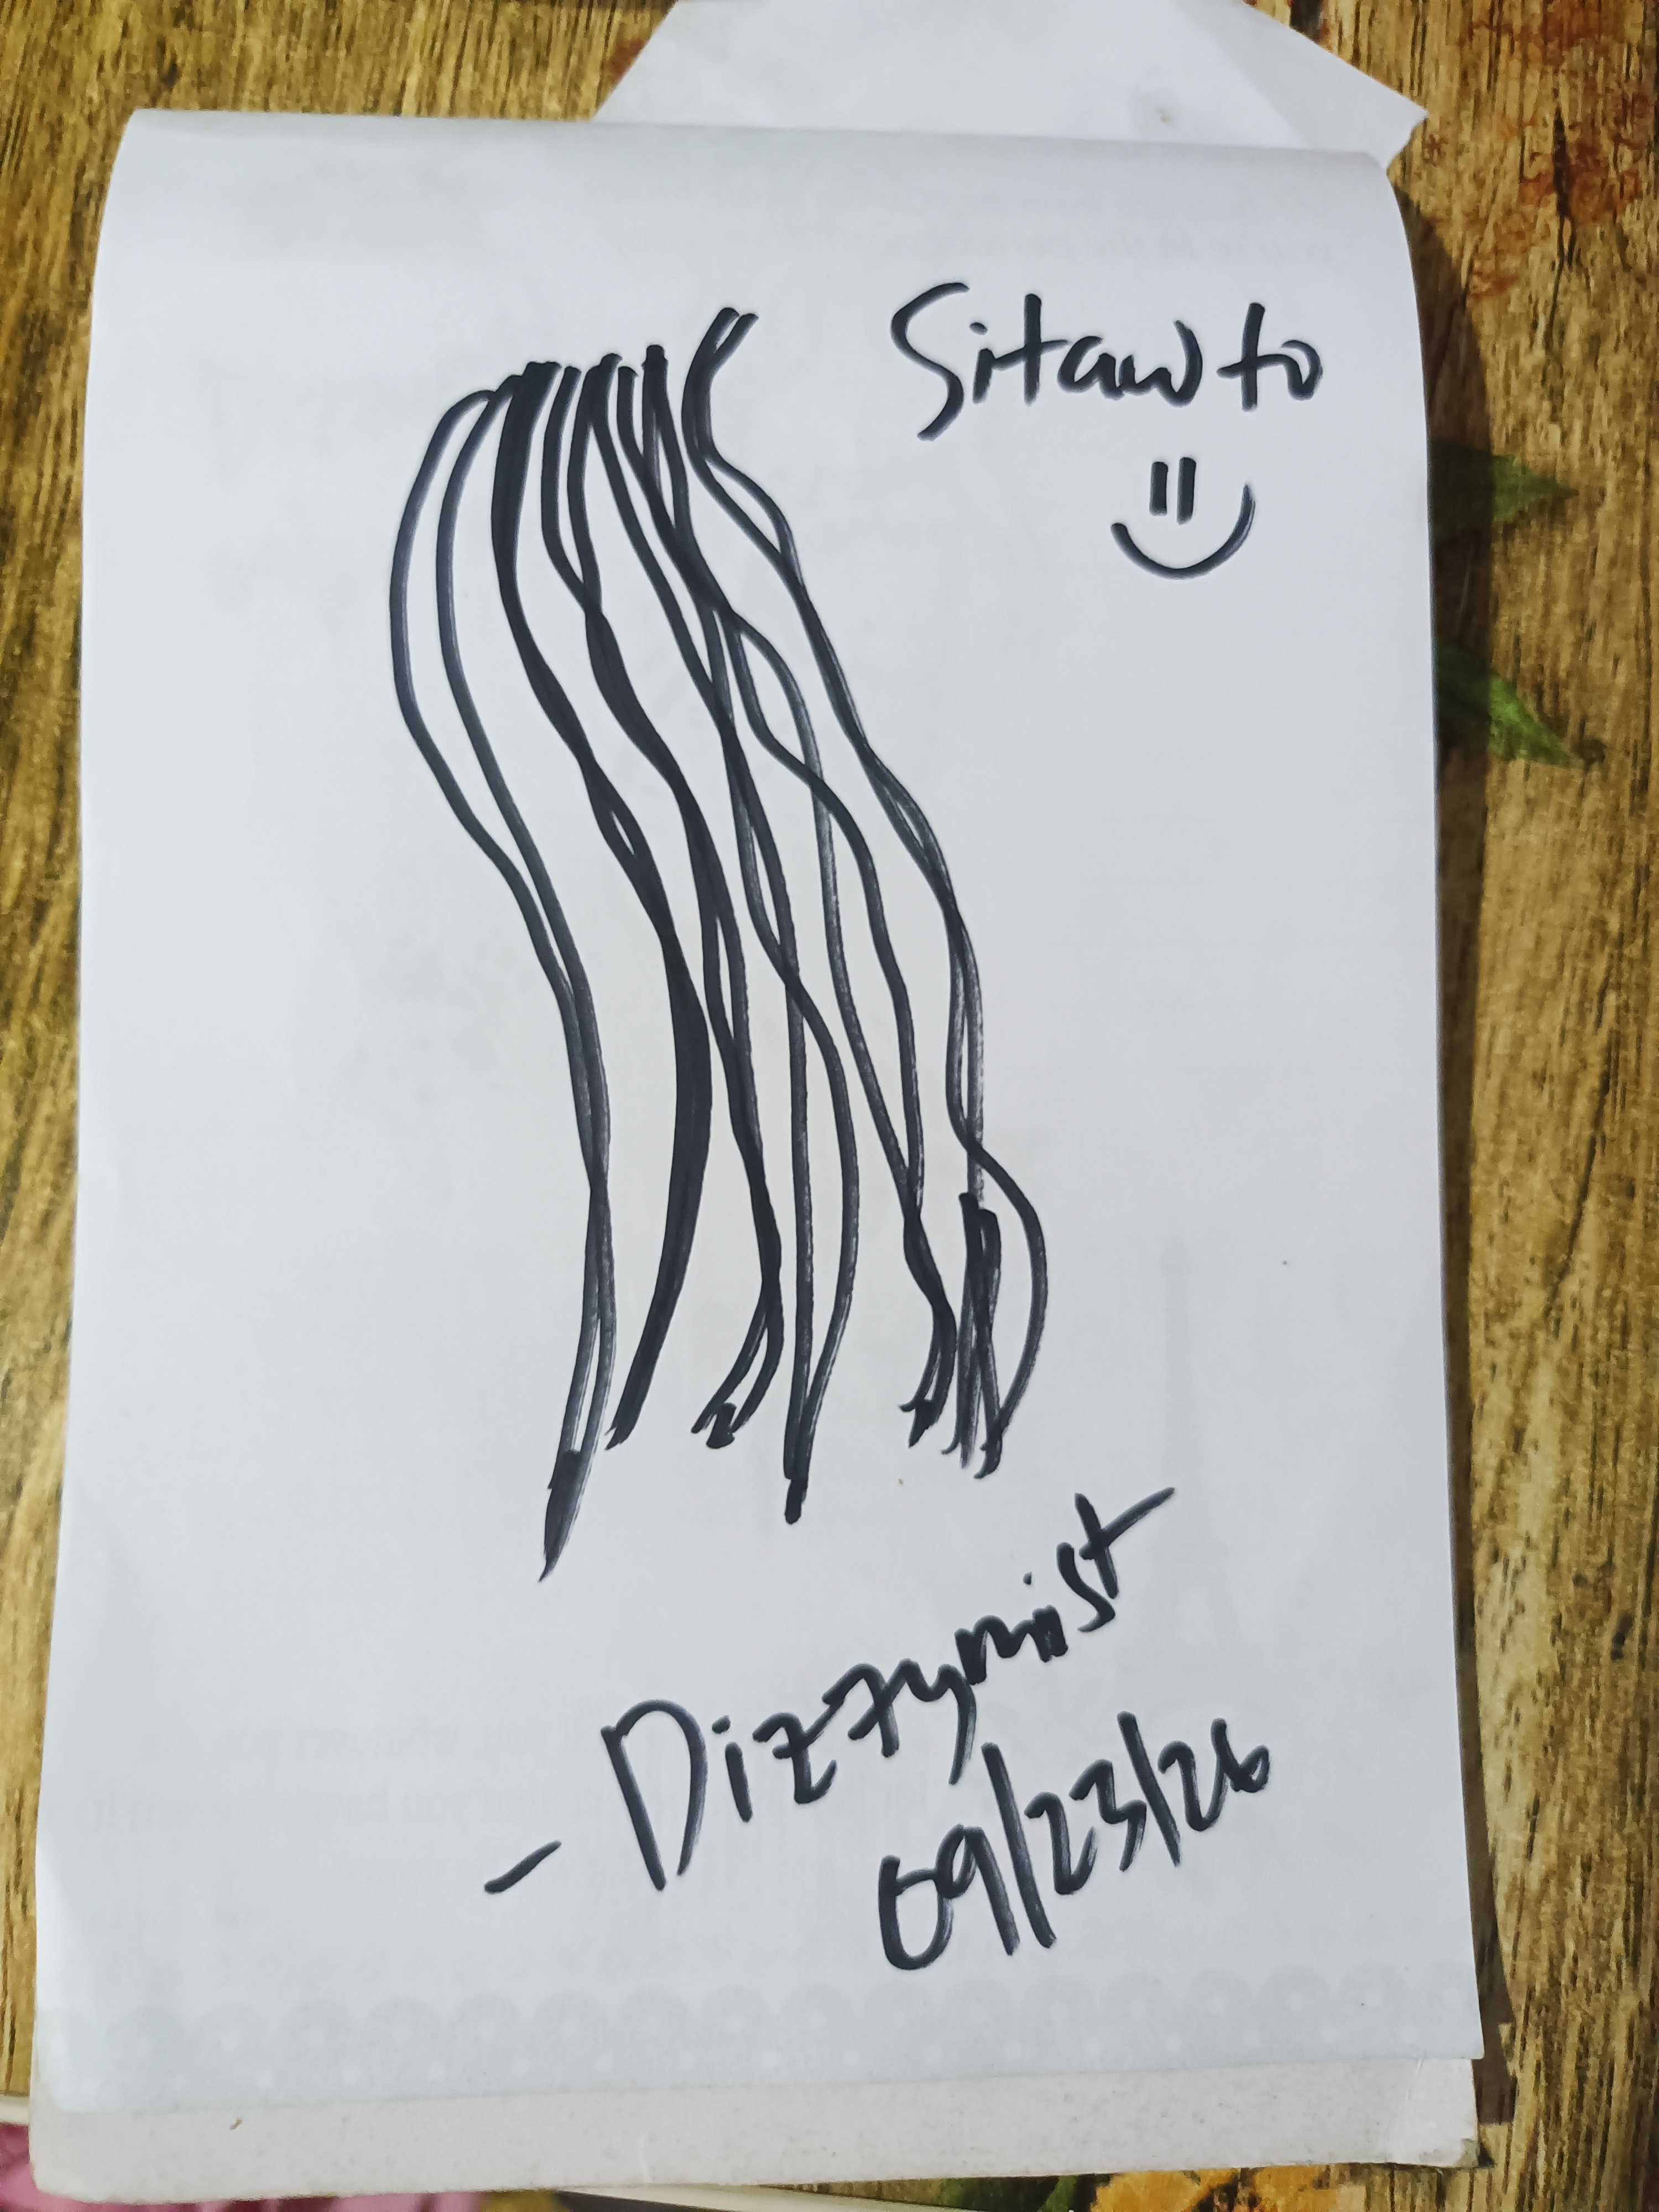 Sitaw to
- Dizzymist
09/23/26